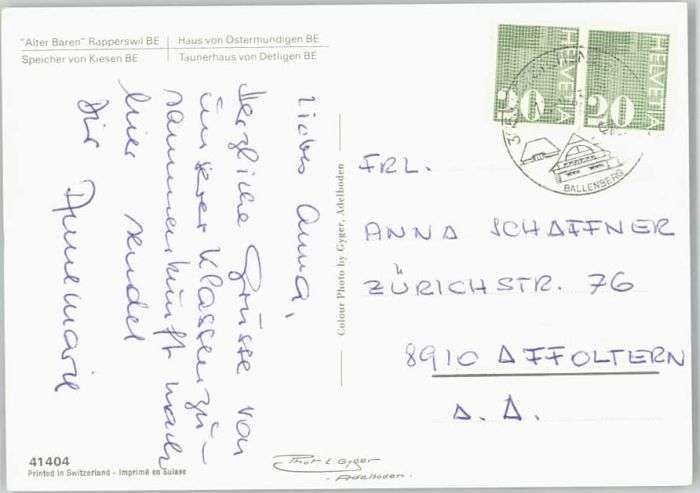 "Alter Bären" Rapperswil BE
Haus von Ostermundigen BE
Speicher von Kiesen BE
Taunerhaus von Detligen BE
Liebe Anna,
Herzliche Grüsse von
unserer Klassenzu-
sammenkunft
hier sendet
Dir Annemarie
Colour Photo by Gyger, Adelboden
HELVETIA
20
HELVETIA
20
BALLENBERG
FRL.
ANNA SCHAFFNER
ZÜRICHSTR. 76
8910 AFFOLTERN
A. A.
41404
Printed in Switzerland - Imprimé en Suisse
Phot E. Gyger
- Adelboden -